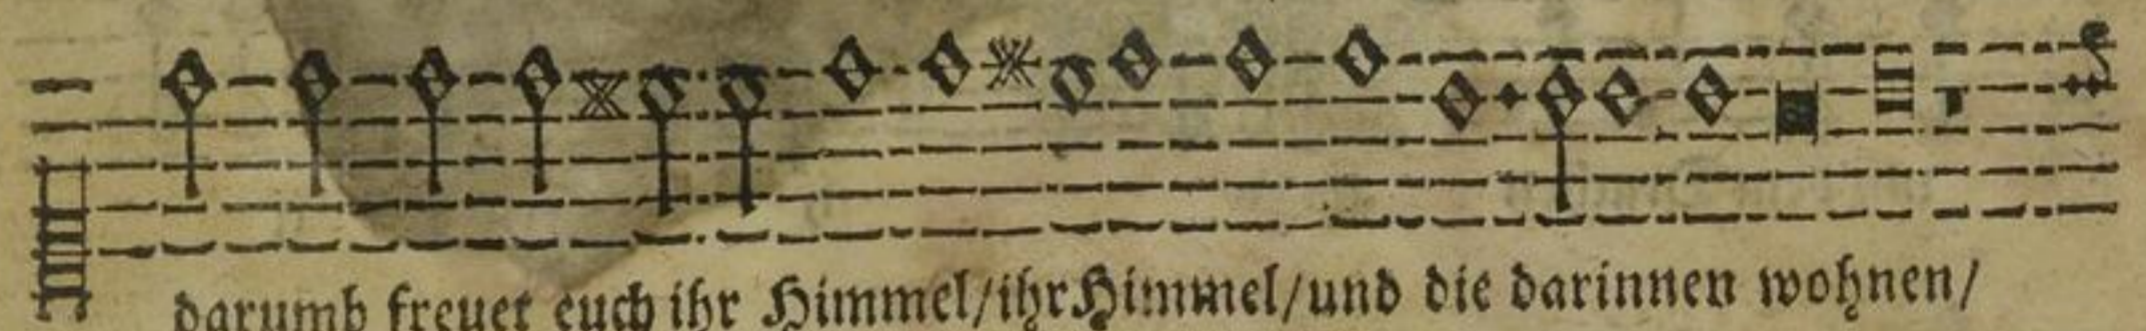 darumb freuet euch ihr Himmel/ihr Himmel/und die darinnen wohnen/